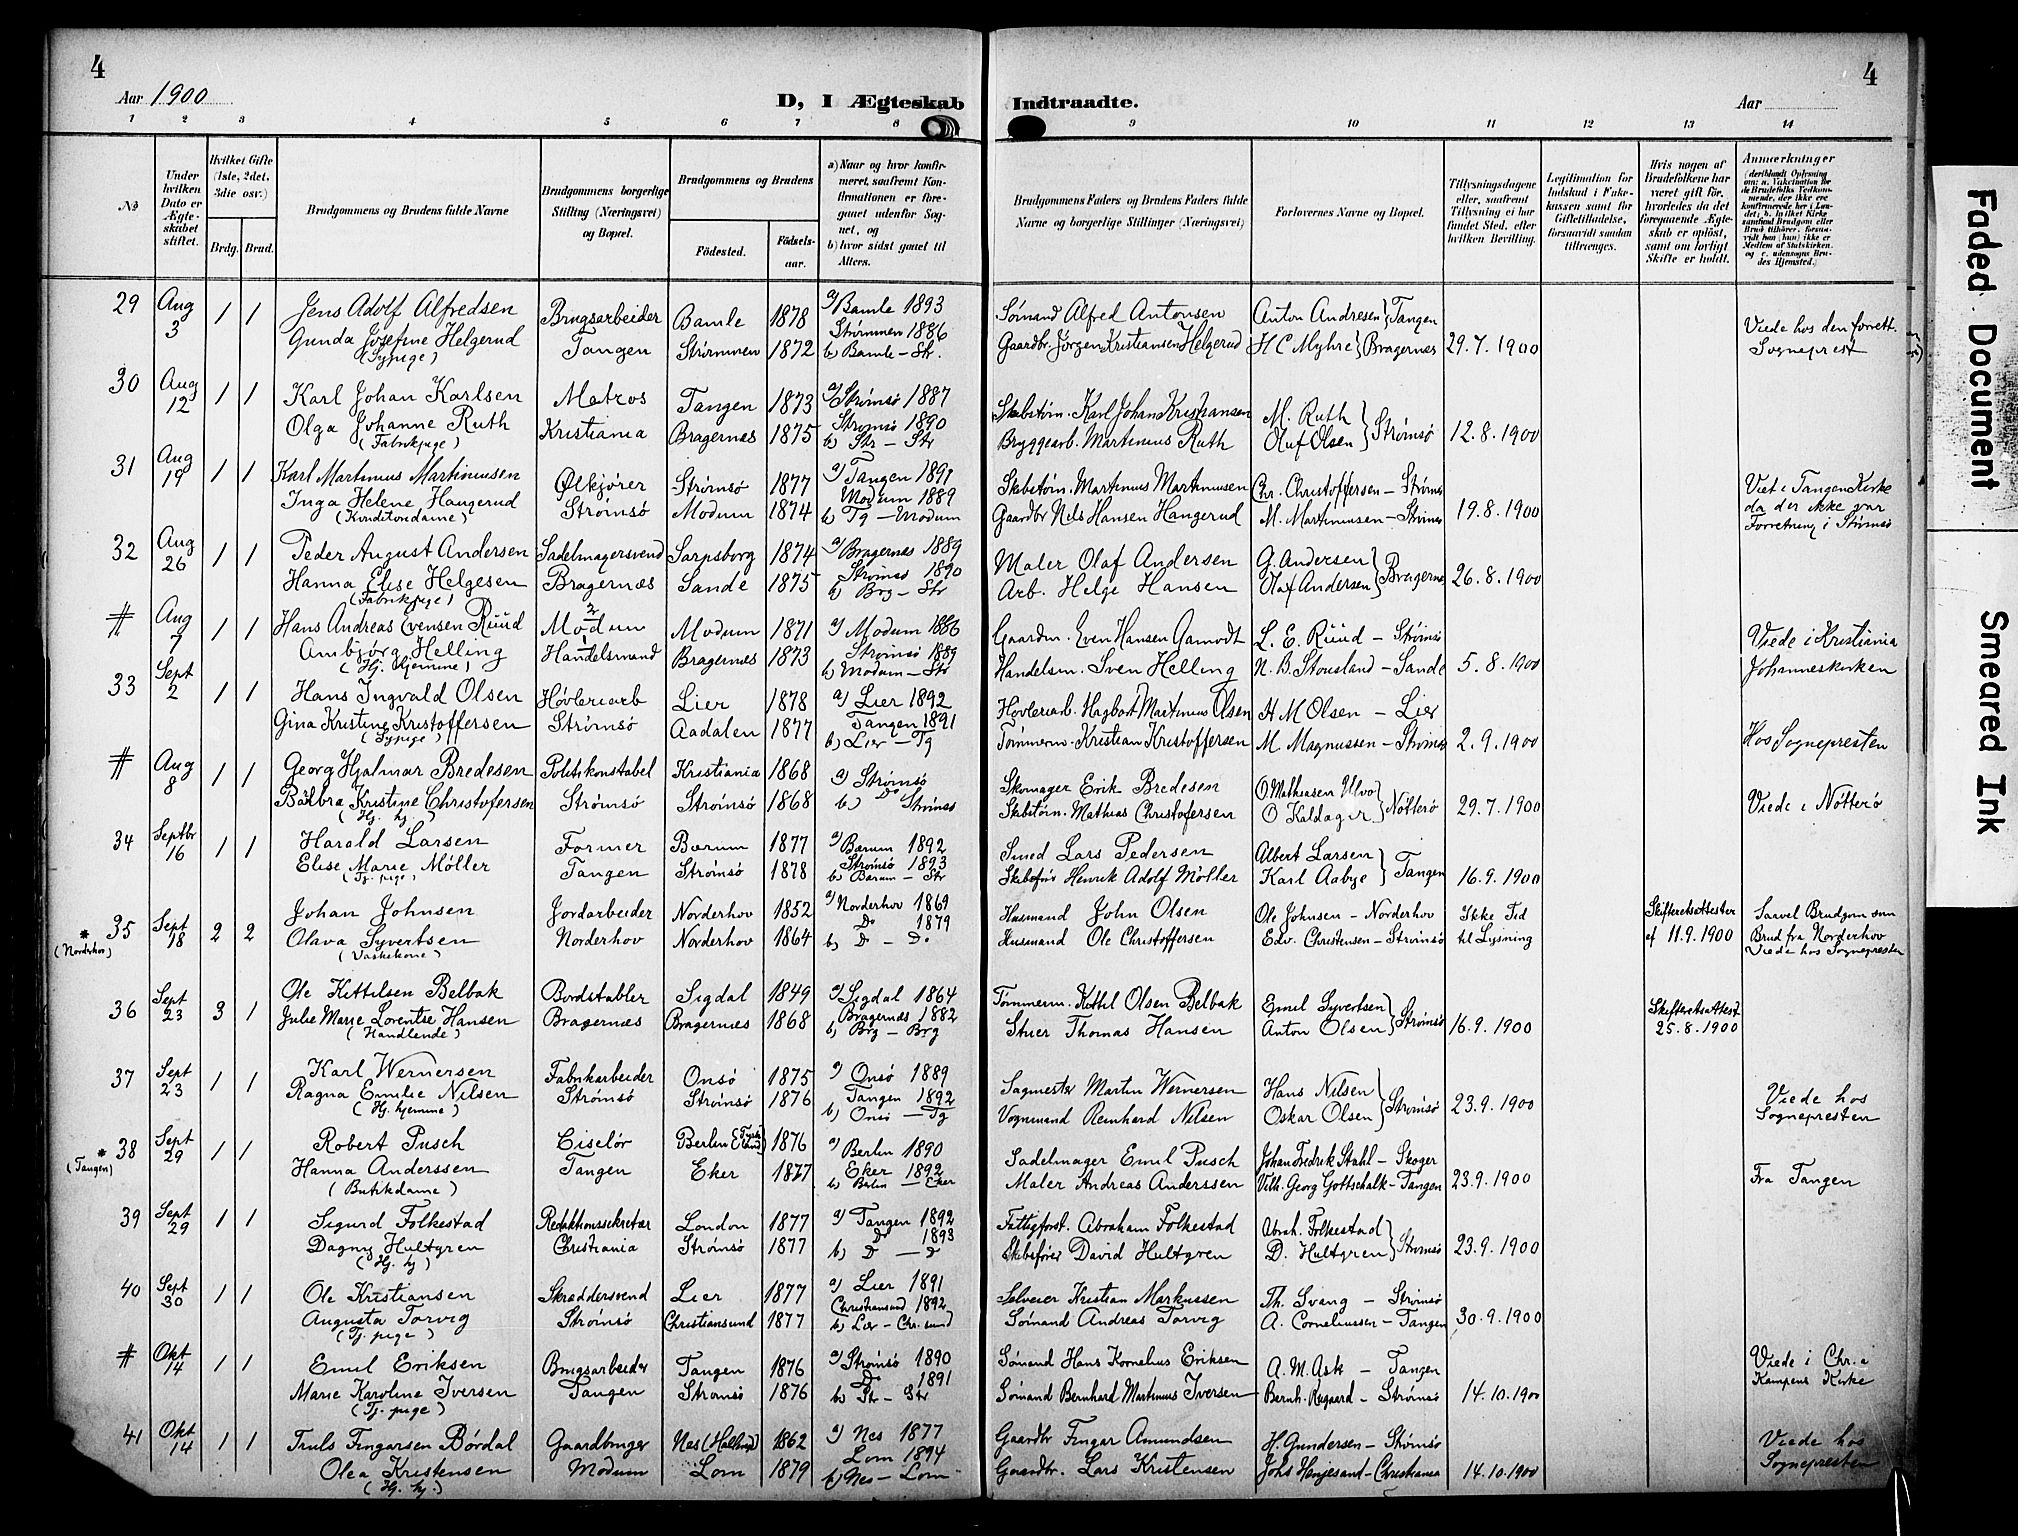 4
Aar 1900
D, I Ægteskab Indtraadte.
Aar
4
1 2 3 4 5 6 7 8 9 10 11 12 13 14
№
Under hvilken Dato er Ægteskabet stiftet.
Hvilket Gifte (1ste, 2det, 3die osv.)
Brdg. Brud.
Brudgommens og Brudens fulde Navne
Brudgommens borgerlige Stilling (Næringsvei) og Bopæl.
Brudgommens og Brudens
Fødested.
Fødselsaar.
a) Naar og hvor konfirmeret, saafremt Konfirmationen er foregaaet udenfor Sognet, og
b) hvor sidst gaaet til Alters.
Brudgommens Faders og Brudens Faders fulde Navne og borgerlige Stillinger (Næringsvei)
Forlovernes Navne og Bopæl.
Tillysningsdagene eller, saafremt Tillysning ei har fundet Sted, efter hvilken Bevilling.
Legitimation for Indskud i Enkekassen samt for Giftetilladelse, forsaavidt saadan tiltrænges.
Hvis nogen af Brudefolkene har været gift før, hvorledes da det foregaaende Ægteskab er opløst, samt om lovligt Skifte er holdt.
Anmærkninger (deriblandt Oplysning om: a. Vakcination for de Brudefolks Vedkommende, der ikke ere konfirmerede her i Landet; b. hvilket Kirkesamfund Brudgom eller Brud tilhører, forsaavidt han (hun) ikke er Medlem af Statskirken, og c. udensogns Brudes Hjemsted.)
29 Aug 3 1 1 Jens Adolf Alfredsen Brugsarbeider Bamle 1878 a) Bamle 1893 Sømand Alfred Antonsen Anton Andresen } Tangen
Gunda Josefine Helgerud (Sypige) Tangen Strømmen 1872 Strømmen 1886 b) Bamle - Str. Gaardbr. Jørgen Kristiansen Helgerud H C Myhre } Bragernes 29.7.1900 Viede hos den forrett. Sogneprest
30 Aug 12 1 1 Karl Johan Karlsen Matros Tangen 1873 a) Strømsø 1887 Skibstøm. Karl Johan Kristiansen M. Ruth
Olga Johanne Ruth (Fabrikpige) Kristiania Bragernes 1875 Strømsø 1890 b) Str - Str Bryggearb. Martinius Ruth Oluf Olsen } Strømsø 12.8.1900
31 Aug 19 1 1 Karl Martinius Martiniussen Ølkjører Strømsø 1877 a) Tangen 1891 Skibstøm. Martinius Martiniussen Chr. Christoffersen - Strømsø
Inga Helene Haugerud (Konditordame) Strømsø Modum 1874 Modum 1889 b) Tg - Modum Gaardbr Nils Hansen Haugerud M. Martiniussen - Strømsø 19.8.1900 Viet i Tangen Kirke da der ikke var Forretning i Strømsø
32 Aug 26 1 1 Peder August Andersen Sadelmagersvend Sarpsborg 1874 a) Bragernæs 1889 Maler Olaf Andersen G. Andersen
Hanna Elise Helgesen (Fabrikpige) Bragernæs Sande 1875 Strømsø 1890 b) Brg - Str Arb. Helge Hansen Olaf Andersen } Bragernes 26.8.1900
# Aug 7 1 1 Hans Andreas Evensen Ruud Modum Modum 1871 a) Modum 1886 Gaardm. Even Hansen Aamodt L. E. Ruud - Strømsø
Ambjørg Helling (Hj. hjemme) Handelsmand Bragernes 1873 Strømsø 1889 b) Modum - Str Handelsm. Sven Helling N. B. Stousland - Sande 5.8.1900 Viede i Kristiania Johanneskirken
33 Sept 2 1 1 Hans Ingvald Olsen Høvleriarb Lier 1878 a) Lier 1892 Høvleriarb. Hagbart Martinius Olsen H M Olsen - Lier
Gina Kristine Kristoffersen (Sypige) Strømsø Aadalen 1877 Tangen 1891 b) Lier - Tg Tømmerm. Kristian Kristoffersen M. Magnussen - Strømsø 2.9.1900 Hos Sognepresten
# Aug 8 1 1 Georg Hjalmar Bredesen Politikonstabel Kristiania 1868 a) Strømsø Skomager Erik Bredesen O. Mathiasen Ulvø
Barbra Kristine Christofersen (Hj. hj.) Strømsø Strømsø 1868 Do b) Strømsø Skibstøm. Mathias Christofersen O Kaldager } Nøtterø 29.7.1900 Viede i Nøtterø
34 Septbr 16 1 1 Harald Larsen Former Bærum 1877 a) Bærum 1892 Smed Lars Pedersen Albert Larsen
Elise Marie Møller (Tj. pige) Tangen Strømsø 1878 Strømsø 1893 b) Bærum - Str Skibsfør Henrik Adolf Møller Karl Aabye } Tangen 16.9.1900
* 35 (Norderhov) Sept 18 2 2 Johan Johnsen Jordarbeider Norderhov 1852 a) Norderhov 1869 Husmand John Olsen Ole Johnsen - Norderhov Ikke Tid Skifteretsattester Saavel Brudgom som
Olava Syvertsen (Vaskekone) Norderhov Norderhov 1864 Do 1879 b) D - D. Husmand Ole Christoffersen Edv. Christensen - Strømsø til Lysning af 11.9.1900 Brud fra Norderhov Viede hos Sognepresten
36 Sept 23 3 1 Ole Kittilsen Belbak Bordstabler Sigdal 1849 a) Sigdal 1864 Tømmerm. Kittil Olsen Belbak Emil Syvertsen Skifteretsattest
Julie Marie Lorentse Hansen (Handlende) Bragernæs Bragernæs 1868 Bragernæs 1882 b) Brg - Brg Stuer Thomas Hansen Anton Olsen } Strømsø 16.9.1900 25.8.1900
37 Sept 23 1 1 Karl Wernersen Fabrikarbeider Onsø 1875 a) Onsø 1889 Sagmester Martin Wernersen Hans Nilsen
Ragna Emilie Nilsen (Hj. hjemme) Strømsø Strømsø 1876 Tangen 1892 b) Onsø - Tg Vognmand Reinhard Nilsen Oskar Olsen } Strømsø 23.9.1900 Viede hos Sognepresten
* 38 (Tangen) Sept 29 1 1 Robert Pusch Ciselør Berlin (Tyskland) 1876 a) Berlin 1890 Sadelmager Emil Pusch Johan Fredrik Stahl - Skoger
Hanna Anderssen (Butikdame) Tangen Eker 1877 Eker 1892 b) Berlin - Eker Maler Andreas Anderssen Vilh. Georg Gottschalk - Tangen 23.9.1900 Fra Tangen
39 Sept 29 1 1 Sigurd Folkestad Redaktionssekretær London 1877 a) Tangen 1892 Fattigforst. Abraham Folkestad Abrah. Folkestad
Dagny Hultgren (Hj. hj) Christiania Strømsø 1877 D 1893 b) D - D Skibsfører David Hultgren D. Hultgren } Strømsø 23.9.1900
40 Sept 30 1 1 Ole Kristiansen Skræddersvend Lier 1877 a) Lier 1891 Selveier Kristian Markussen Th. Svang - Strømsø
Augusta Torvig (Tj. pige) Strømsø Christiansund 1877 Christiansund 1892 b) Lier - Chr. sund Sømand Andreas Torvig A. Corneliussen - Tangen 30.9.1900
# Okt 14 1 1 Emil Eriksen Brugsarbeider Tangen 1876 a) Strømsø 1890 Sømand Hans Kornelius Eriksen A. M. Ask - Tangen
Marie Karoline Iversen (Tj. pige) Tangen Strømsø 1876 Do 1891 b) Str - Str Sømand Bernhard Martinius Iversen Bernh. Aagaard - Strømsø 14.10.1900 Viede i Chr.a Kampens Kirke
41 Okt 14 1 1 Truls Fingarsen Børdal Gaardbruger Nes (Hallingd) 1862 a) Nes 1877 Gaardbr Fingar Amundsen H. Gundersen - Strømsø
Olea Kristensen (Hj. hj.) Modum Lom 1879 Lom 1894 b) Nes - Lom Gaardbr. Lars Kristensen Johs Henjesand - Christiania 14.10.1900 Viede hos Sognepresten
Faded Document
Smeared Ink